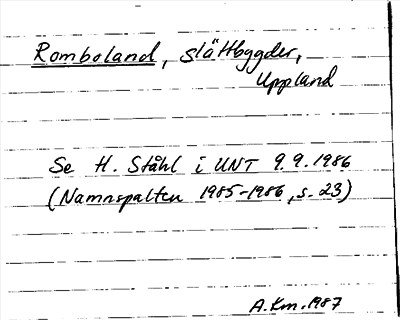 Romboland, slättbygder,
Uppland
Se H. Ståhl i UNT 9.9.1986
(Namnspalten 1985-1986, s. 23)
A.Km. 1987